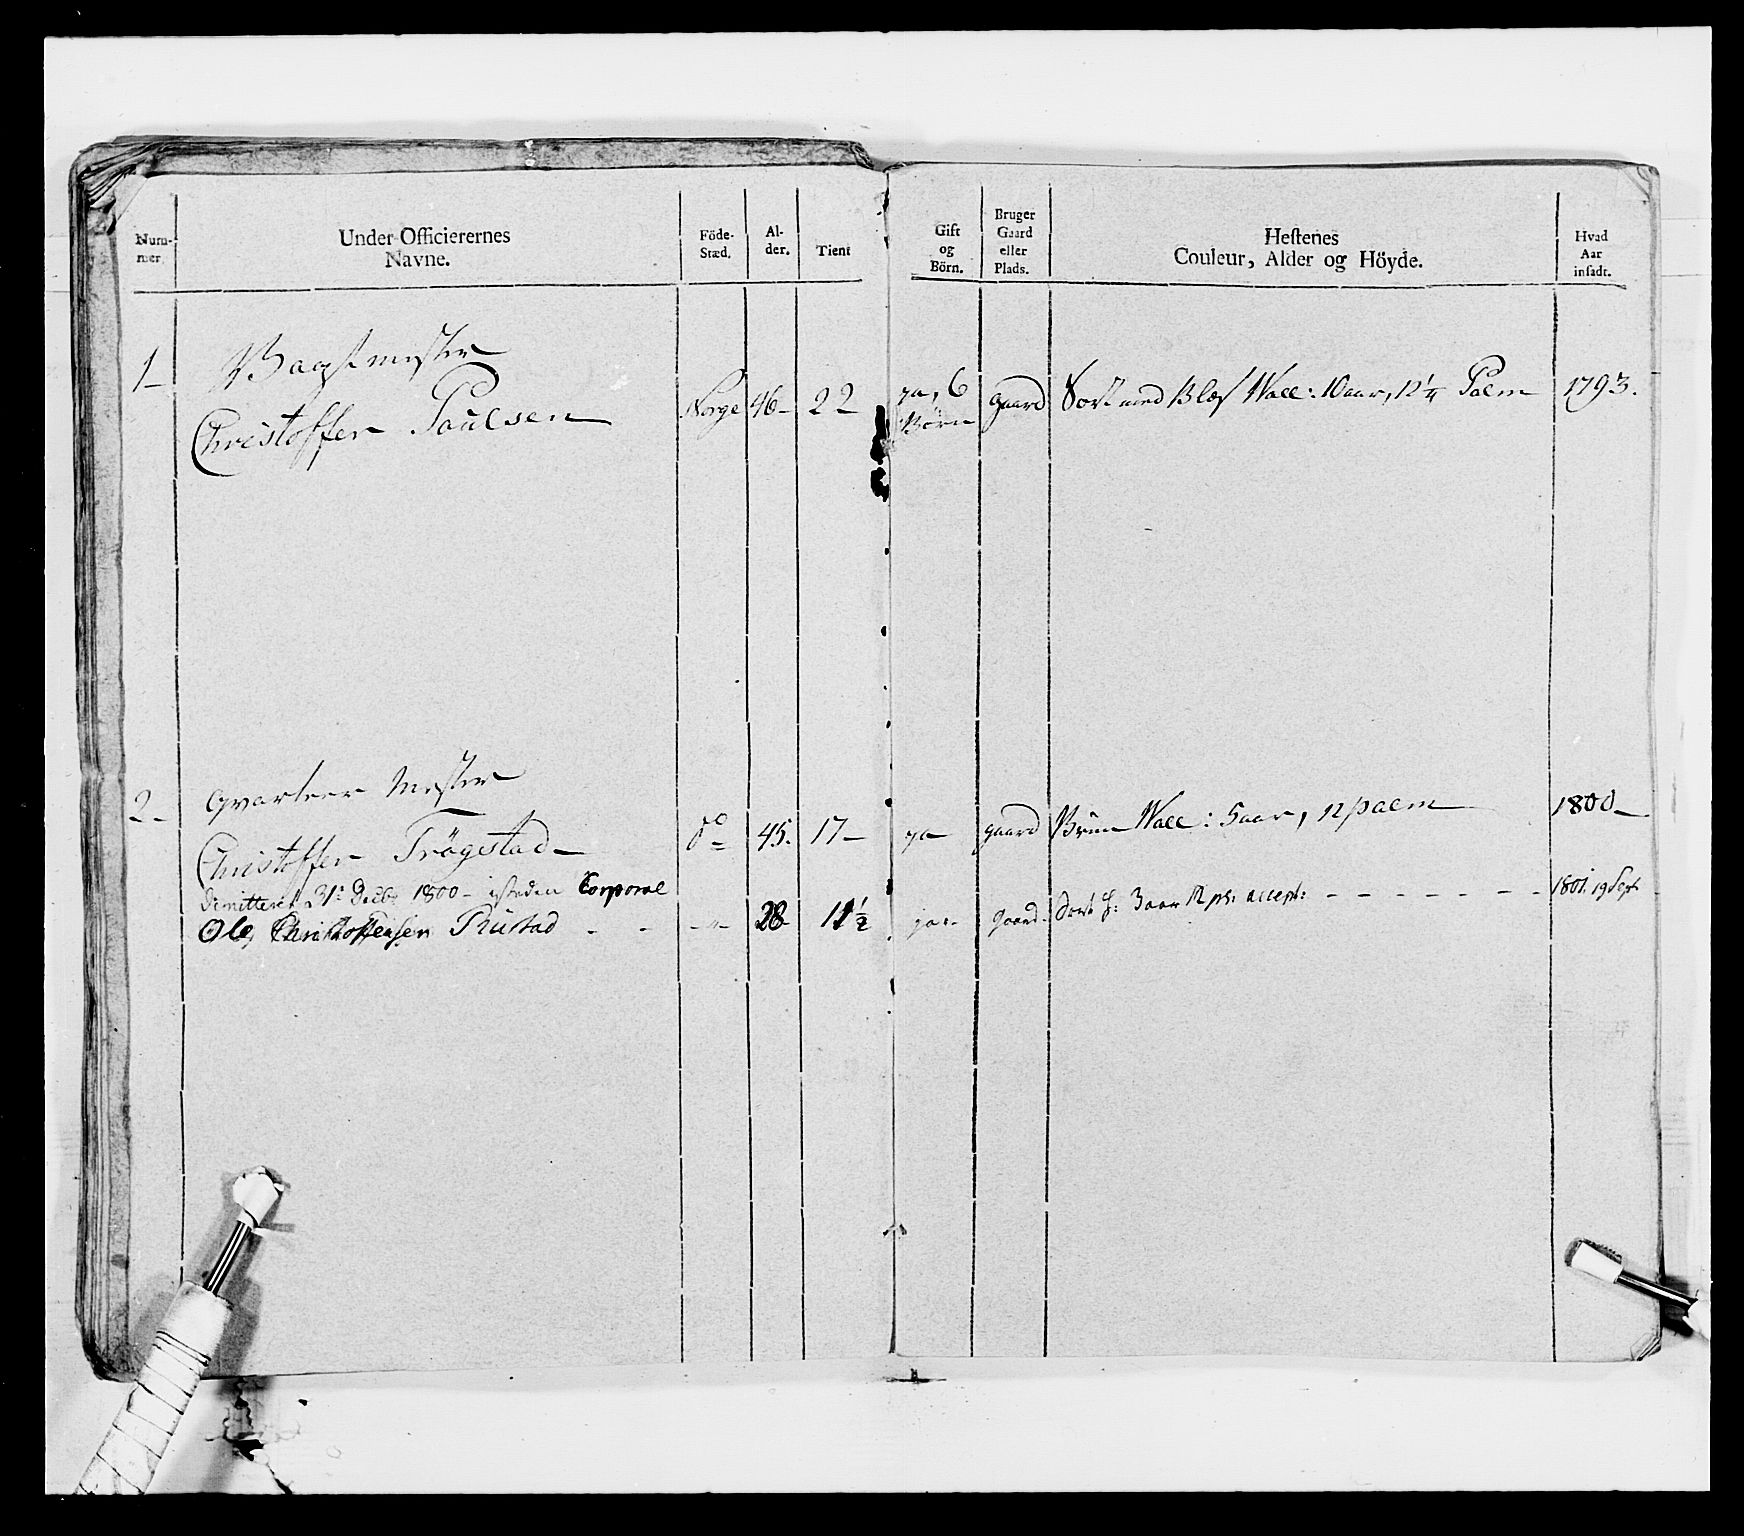 Num-
mer
Under-Officierernes
Navne.
Föde-
Stæd.
Al-
der.
Tient
Gift
og
Börn.
Bruger
Gaard
eller
Plads.
Hestenes
Couleur, Alder og Höyde.
Hvad
Aar
insadt.
1 Vagtmester
Christoffer Paulsen Norge 46 22 ja, 6 Börn gaard Sort med Blæs Wall: 10 aar, 12¼ Palm 1793.
2 Qvarteer Mester
Christoffer Trögstad do 45. 17 ja gaard Brun Wall: 5 aar, 12 palm 1800
Dimitteret 31. Decbr 1800 - isteden Corporal
Ole Christophersen Rustad - " - 28 11½ ja gaard Sort H: 3 aar 12 pl: accept: 1801. 19 Sept